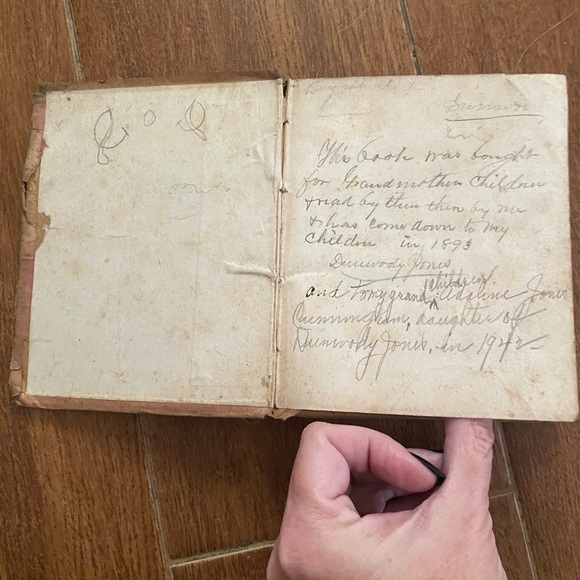 This book was bought
for Grandmothers Children
+ read by them then by me
+ has come down to my
Children in 1893
Dunwody Jones
children.
and to my grand ^ Adaline Jones
Cunningham, daughter of
Dunwody Jones, in 1942-